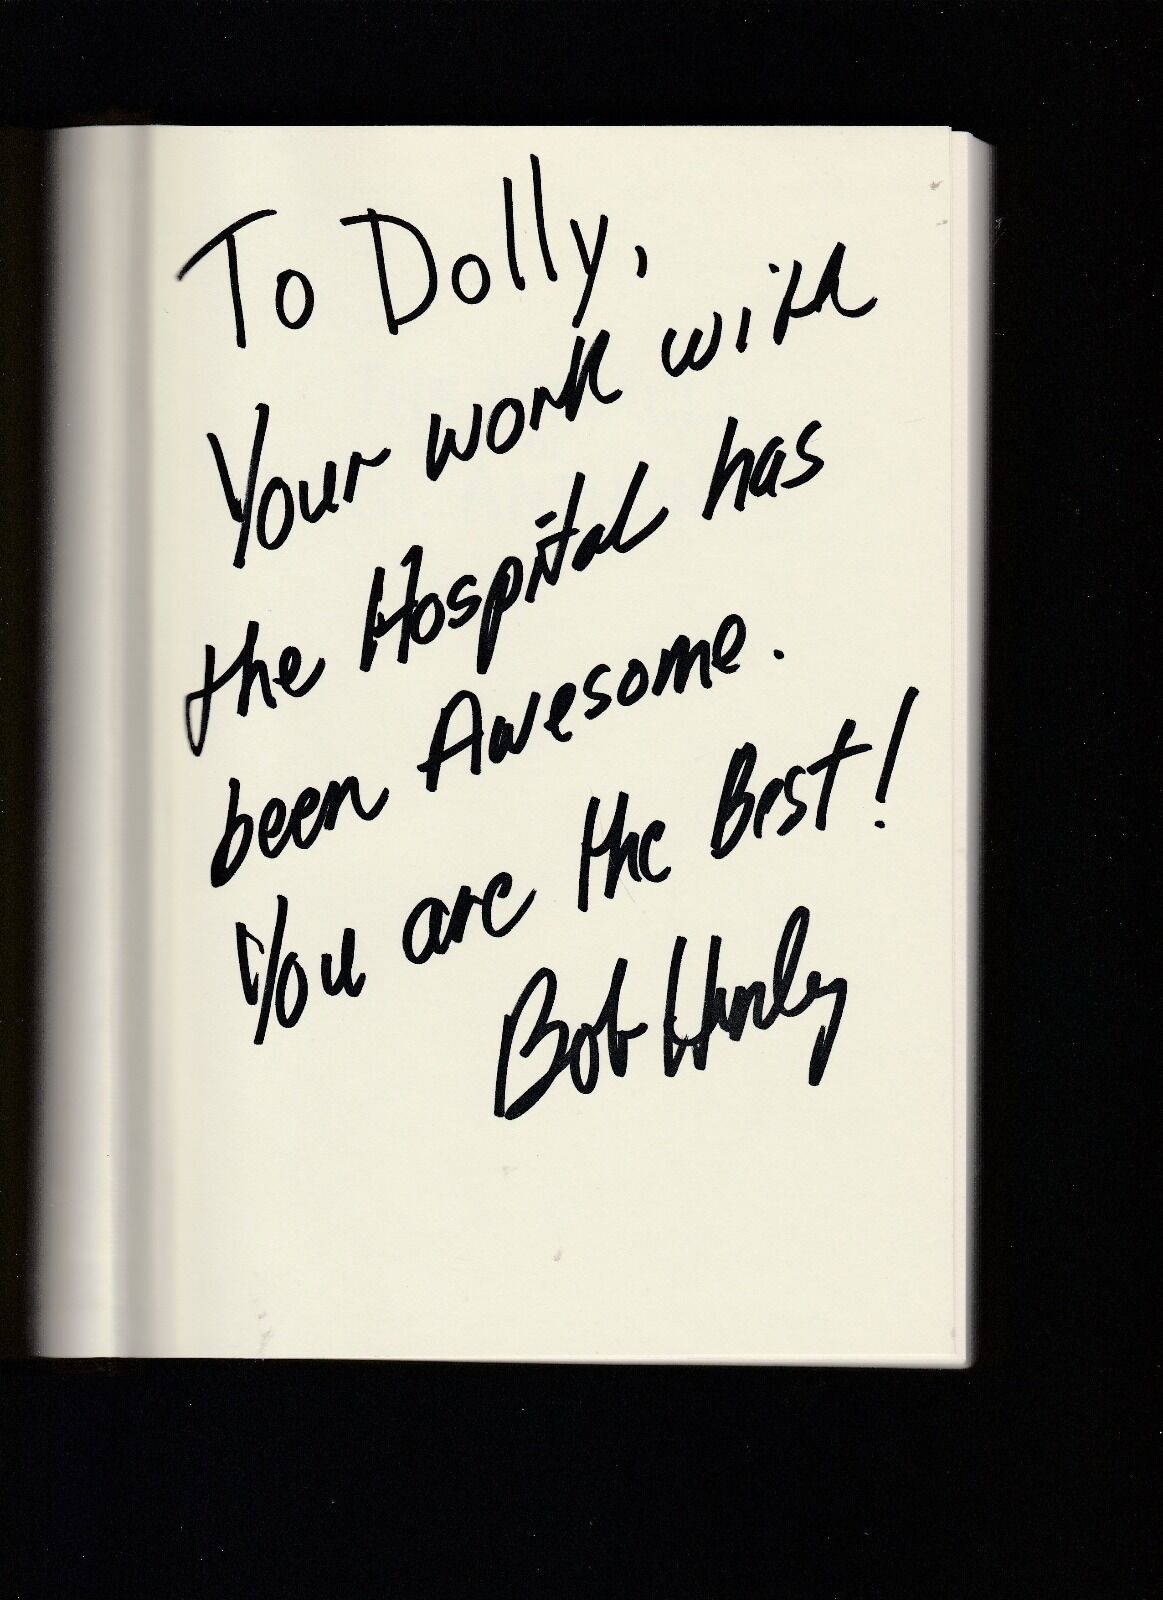 To Dolly,
Your work with
the Hospital has
been Awesome.
You are the Best!
Bob Hurley